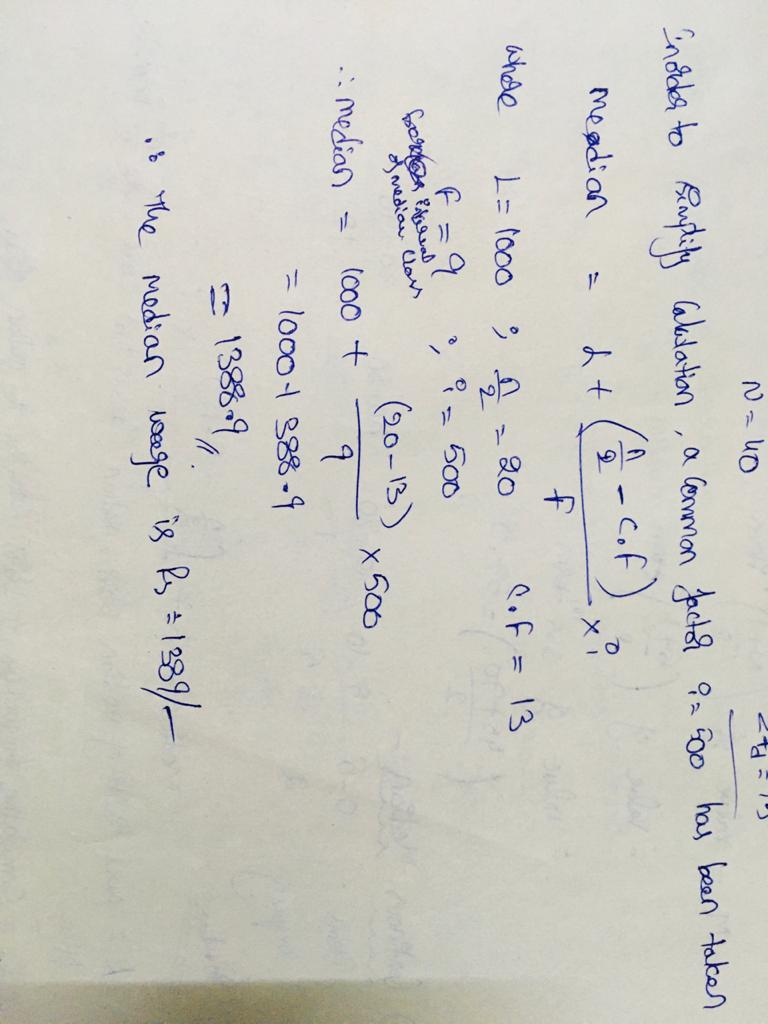 N = 40
Σfd = 13
inorder to simplify Calculation, a common factor i = 500 has been taken
median = L + (n/2 - C.F) / F × i
where L = 1000 ; n/2 = 20 C.F = 13
F = 9 ; i = 500
of median class
∴ median = 1000 + (20 - 13) / 9 × 500
= 1000 + 388.9
= 1388.9 //.
∴ The median wage is Rs = 1389/-